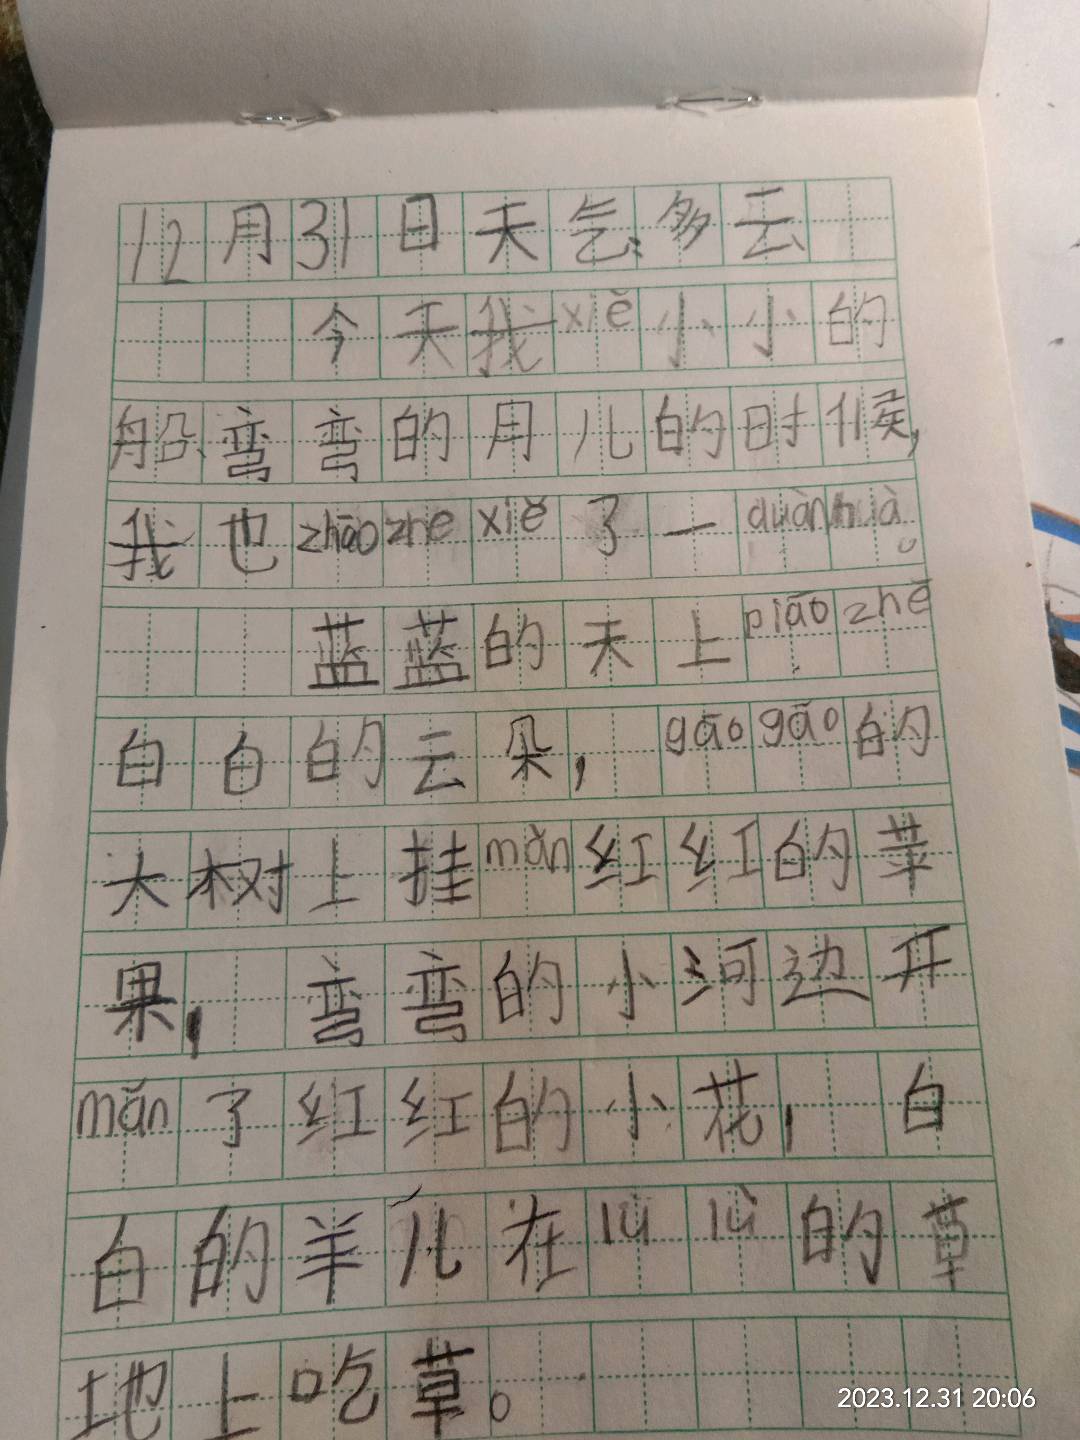 12月31日天气、多云
今天我xiě小小的
船、弯弯的月儿的时候,
我也zhāo zhe xiě了一duàn huà。
蓝蓝的天上piāo zhē
白白的云朵, gāo gāo的
大树上挂mǎn红红的苹
果, 弯弯的小河边开
mǎn了红红的小花, 白
白的羊儿在lǜ lǜ的草
地上吃草。
2023.12.31 20:06